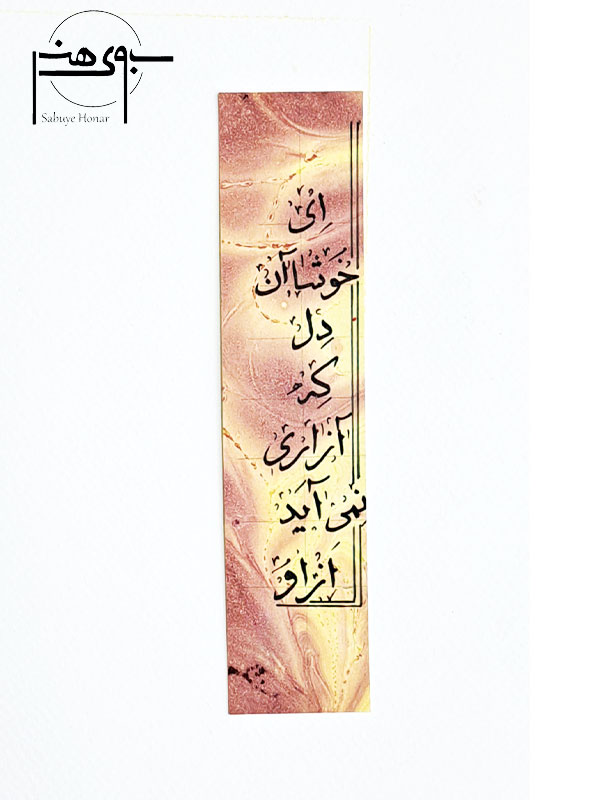 سبوی هنر
Sabuye Honar
اِی
خُوشا آن
دِل
کِه
آزاری
نمی آید
اَز او